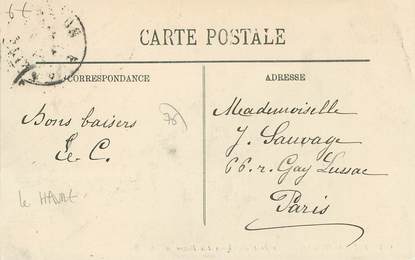 CARTE POSTALE
CORRESPONDANCE
ADRESSE
Bons baisers
76
Mademoiselle
J. Sauvage
66. r. Gay Lussac
Paris
le HAVRE